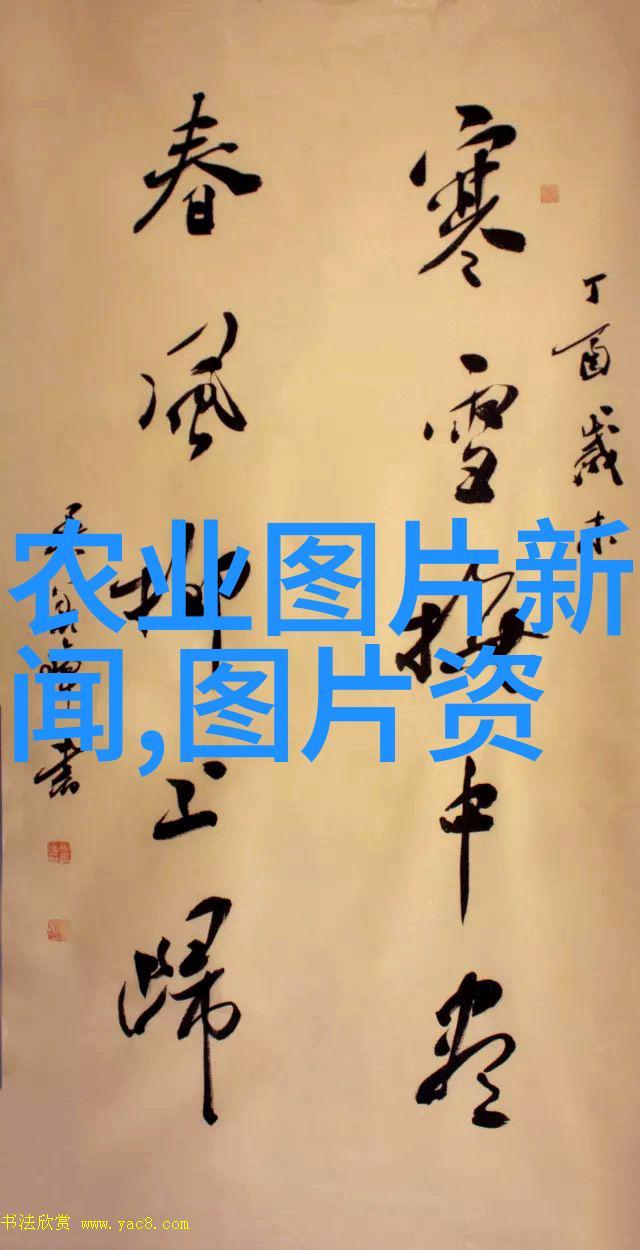 丁酉歲末
寒雪梅中尽
春風柳上歸
書
农业图片新
闻,图片资
书法欣赏 www.yac8.com